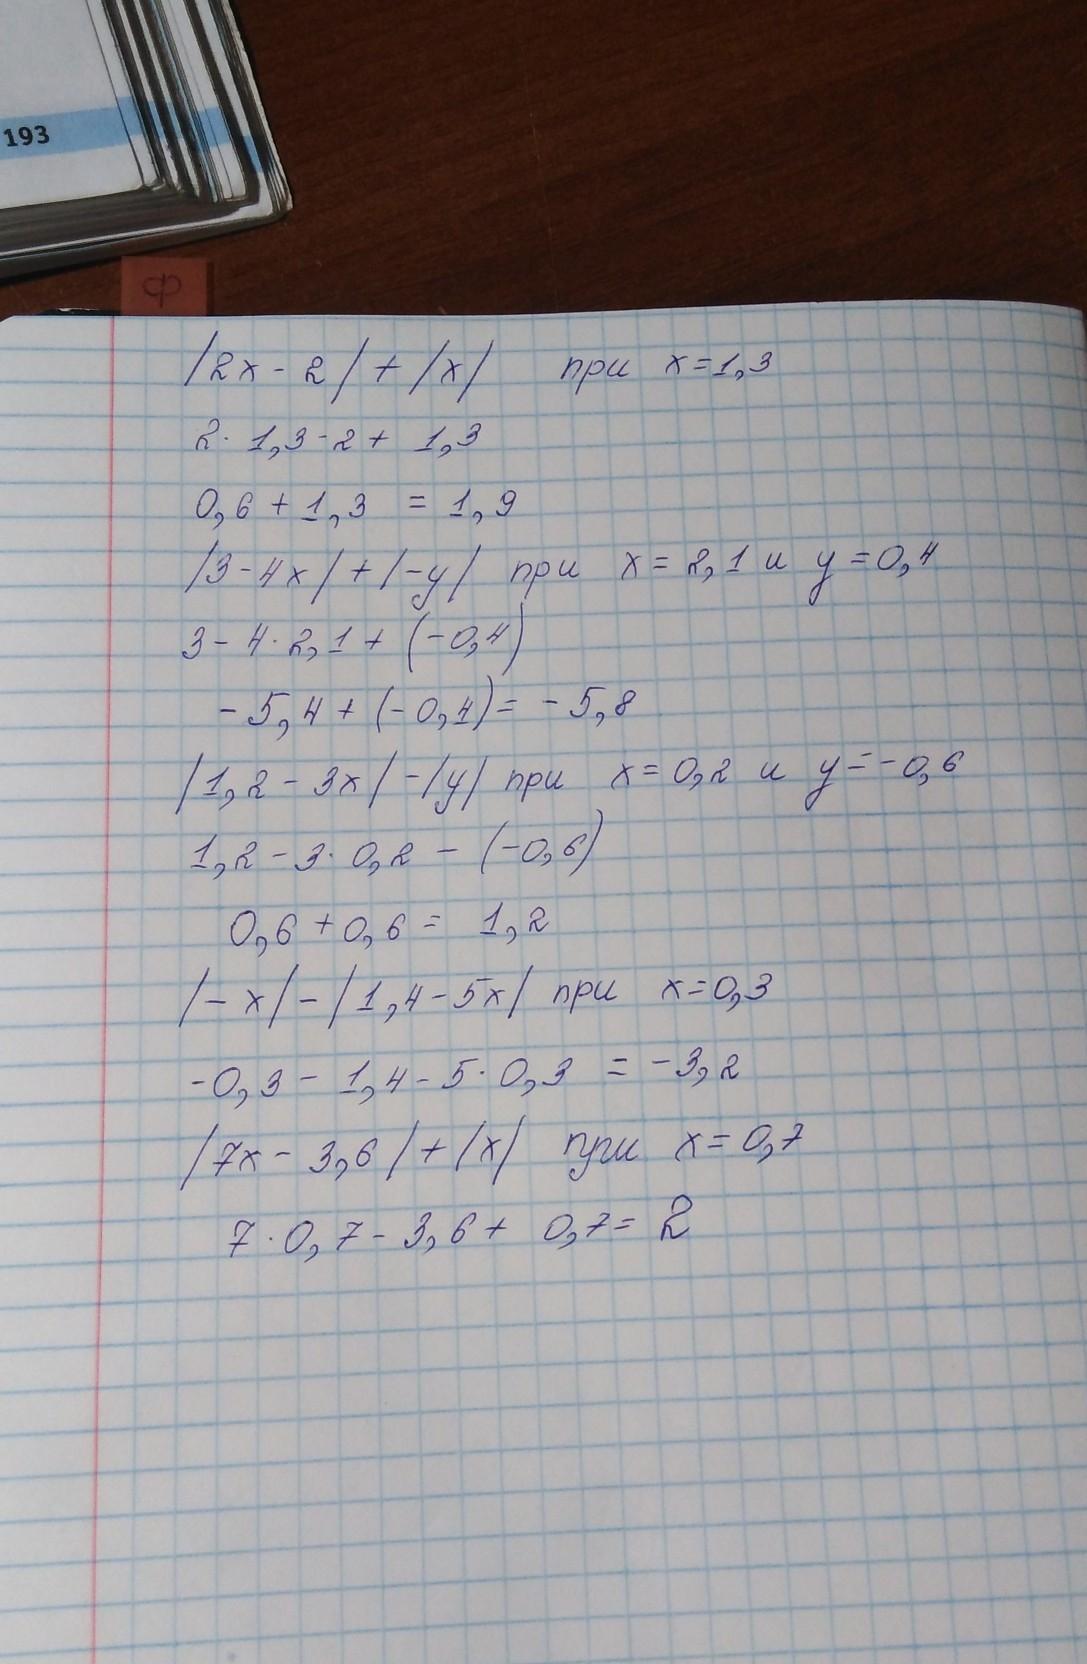 193
Ф
|2x - 2| + |x| при x=1,3
2· 1,3-2+ 1,3
0,6+1,3 = 1,9
|3-4x|+|-y| при x= 2,1 и y=0,4
3- 4·2,1+ (-0,4)
-5,4+(-0,4)= -5,8
|1,2 - 3x|-|y| при x=0,2 и y=-0,6
1,2-3·0,2 - (-0,6)
0,6+0,6= 1,2
|-x|-|1,4-5x| при x=0,3
-0,3- 1,4-5·0,3 = -3,2
|7x- 3,6|+|x| при x=0,7
7·0,7-3,6+ 0,7= 2